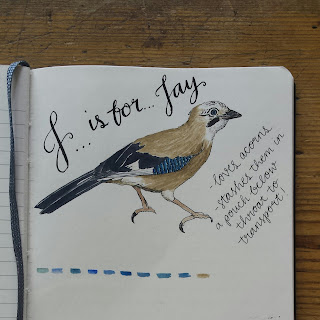 J ... is for... Jay
- loves acorns
- stashes them in
a pouch below
throat to
transport!